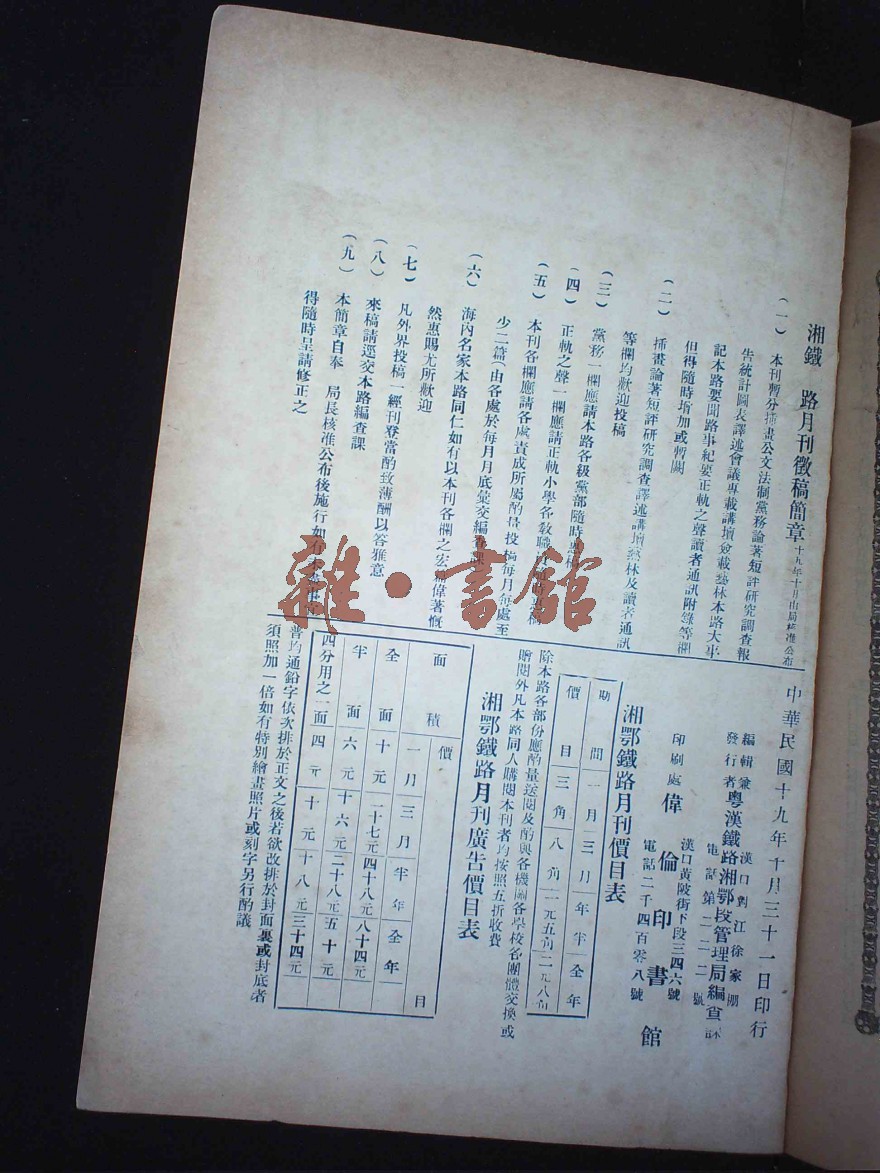 湘鐵 路月刊徵稿簡章 十九年十月由局核准公布
(一) 本刊暫分插畫公文法制黨務論著短評研究調查報
告統計圖表譯述會議專載講壇僉載藝林本路大事
記本路要聞路事紀要正軌之聲讀者通訊附錄等欄
但得隨時增加或暫闕
(二) 插畫論著短評研究調查譯述講壇藝林及讀者通訊
等欄均歡迎投稿
(三) 黨務一欄應請本路各級黨部隨時
(四) 正軌之聲一欄應請正軌小學各教職
(五) 本刊各欄應請各處責成所屬酌量投稿每月每處至
少二篇(由各處於每月月底彙交編查課
(六) 海內名家本路同仁如有以本刊各欄之宏篇偉著慨
然惠賜尤所歡迎
(七) 凡外界投稿一經刊登當酌致薄酬以答雅意
(八) 來稿請逕交本路編查課
(九) 本簡章自奉 局長核准公布後施行如有
得隨時呈請修正之
中華民國十九年十月三十一日印行
編輯兼發行者 粵漢鐵路湘鄂段管理局編查課
漢口對江徐家棚
電話第二二二號
印刷處 偉倫印書館
漢口黃陂街下段三四六號
電話二千四百零八號
湘鄂鐵路月刊價目表
期間 一月 三月 半年 全年
價目 三角 八角 一元五角 二元八角
除本路各部份應酌量送閱及酌與各機關各學校各團體交換或
贈閱外凡本路同人購閱本刊者均按照五折收費
湘鄂鐵路月刊廣告價目表
面積 價目
一月 三月 半年 全年
全面 十元 二十七元 四十八元 八十四元
半面 六元 十六元 二十八元 五十元
四分之一面 四元 十元 十八元 三十四元
普均通鉛字依次排於正文之後若欲改排於封面裏或封底者
須照加一倍如有特別繪畫照片或刻字另行酌議
雜·書館